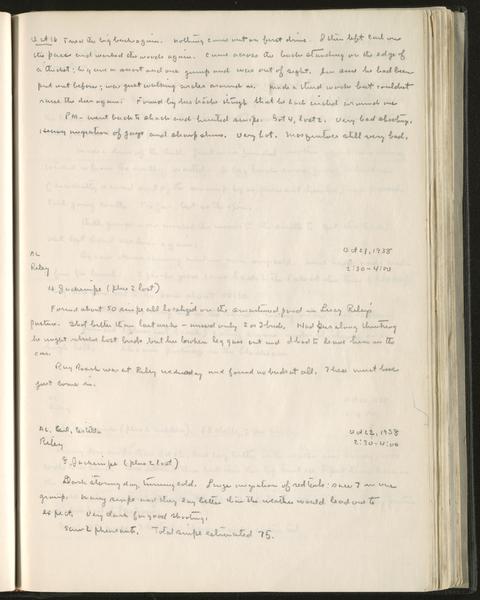 Oct 16 Tried the big buck again. Nothing came out on first drive. I then left Carl on
the pass and worked the woods again. Came across the buck standing on the edge of
a thicket; he gave a snort and one jump and was out of sight. Am sure he had been
put out before; was just walking circles around us. Made a third try but couldn't
raise the deer again. Found by his tracks though that he had circled around me
PM - went back to shack and hunted snipe. Got 4, lost 2. Very bad shooting.
Heavy migration of jays and sharpshins. Very hot. Mosquitoes still very bad.
AL
Oct 21, 1938
Riley
2:30-4:00
4 Jacksnipe (plus 2 lost)
Found about 50 snipe all localized on the smartweed pond in Riley's
pasture. Shot better than last week - missed only 2 or 3 birds. Had Gus along thinking
he might retrieve lost birds but his broken leg gave out and I had to leave him in the
car.
Ray Roark was at Riley Wednesday and found no birds at all. These must have
just come in.
AL, Carl, Estella
Oct 22, 1938
Riley
2:30-4:00
8 Jacksnipe (plus 2 lost)
Dark stormy day, turning cold. Large migration of redtails: saw 7 in one
group. Many snipe and they lay better than the weather would lead one to
expect. Very dark for good shooting.
Saw 2 pheasants. Total snipe estimated 75.